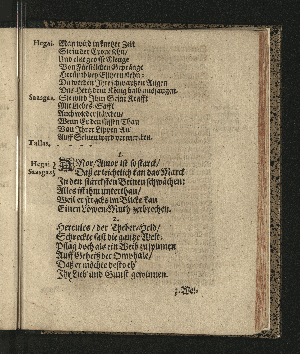 Hegai. Man wird in kurtzer Zeit
Sie in der Crone sehn/
Und eine grosse Menge
Von Fürstlichem Gepränge
Umb sie
Da werden Ihre schwartzen Augen
Das Hertz dem König bald aussaugen.
Saasgas. Sie wird Ihm Seine Krafft
Mit Liebes-Safft
Auch wieder stärcken/
Wenn Er den süssen Thau
Von Ihrer Lippen Au
Auff Seinen wird vermercken.
1.
Hegai.
Saasgas.
Amor/ Amor ist so starck/
Daß er leichtlich kan das Marck
In den stärcksten Beinen schwächen:
Alles ist ihm unterthan/
Weil er stracks im Blicke kan
Einen Löwen-Muth zerbrechen.
2.
Hercules/ der Theber-Held/
Schreckte fast die gantze Welt/
Pflag doch als ein Weib zu spinnen
Auff Geheiß der Omphale/
Daß er möchte desto eh'
Ihr Lieb' und Gunst gewinnen.